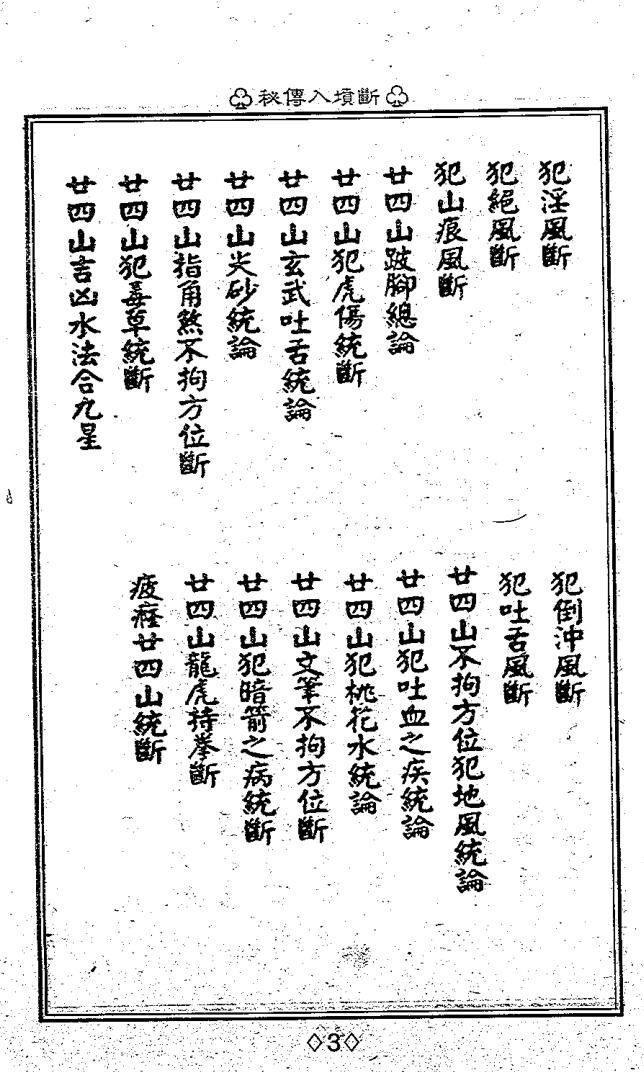 秘傳入墳斷
犯淫風斷
犯絕風斷
犯山痕風斷
廿四山跛腳總論
廿四山犯虎傷統斷
廿四山玄武吐舌統論
廿四山尖砂統論
廿四山指角煞不拘方位斷
廿四山犯毒草統斷
廿四山吉凶水法合九星
犯倒沖風斷
犯吐舌風斷
廿四山不拘方位犯地風統論
廿四山犯吐血之疾統論
廿四山犯桃花水統論
廿四山文筆不拘方位斷
廿四山犯暗箭之病統斷
廿四山龍虎持拳斷
廿四山統斷
3